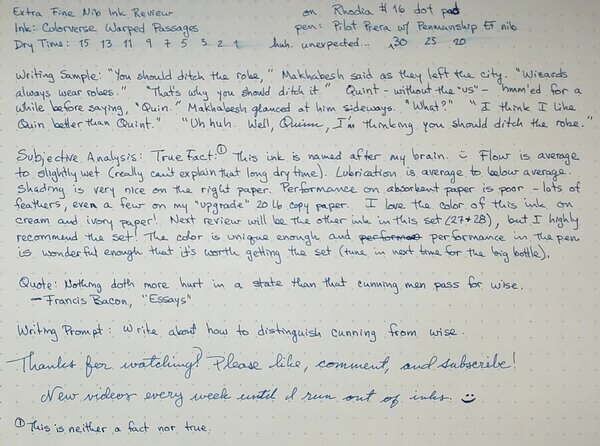 Extra Fine Nib Ink Review on Rhodia #16 dot pad
Ink: Colorverse Warped Passages pen: Pilot Prera w/ Penmanship EF nib
Dry Time: 15 13 11 9 7 5 3 2 1 huh. unexpected... 30 25 20
Writing Sample: "You should ditch the robe," Makhabesh said as they left the city. "Wizards
always wear robes." "That's why you should ditch it." Quint - without the "us" - hmm'ed for a
while before saying, "Quin." Makhabesh glanced at him sideways. "What?" "I think I like
Quin better than Quint." "Uh huh. Well, Quinn, I'm thinking you should ditch the robe."
Subjective Analysis: True Fact:① This ink is named after my brain. :) Flow is average
to slightly wet (really can't explain that long dry time). Lubrication is average to below average.
Shading is very nice on the right paper. Performance on absorbent paper is poor - lots of
feathers, even a few on my "upgrade" 20 lb copy paper. I love the color of this ink on
cream and ivory paper! Next review will be the other ink in this set (27 & 28), but I highly
recommend the set! The color is unique enough and performance in the pen
is wonderful enough that it's worth getting the set (tune in next time for the big bottle).
Quote: Nothing doth more hurt in a state than that cunning men pass for wise.
- Francis Bacon, "Essays"
Writing Prompt: Write about how to distinguish cunning from wise.
Thanks for watching! Please like, comment, and subscribe!
New videos every week until I run out of inks :)
① This is neither a fact nor true.